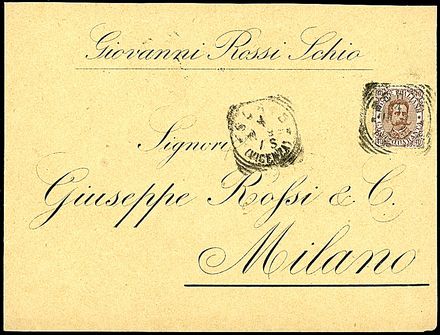 Giovanni Rossi Schio
Signori
Giuseppe Rossi & C.
Milano
(VICENZA)